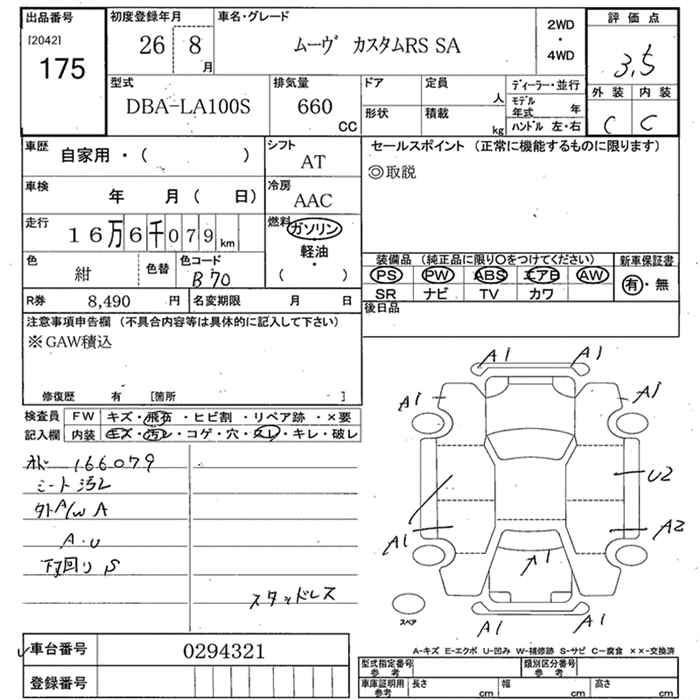 出品番号 初度登録年月 車名・グレード 2WD・4WD 評価点
[2042]
175 26 8月 ムーヴ カスタムRS SA 3,5
型式 排気量 ドア 定員 人 ディーラー・並行 外装 内装
DBA-LA100S 660 CC 形状 積載 kg モデル年式 年 C C
ハンドル 左・右
車歴 自家用・( ) シフト AT セールスポイント (正常に機能するものに限ります)
◎取説
車検 年 月( 日) 冷房 AAC
走行 16万6千079km 燃料 ガソリン・軽油・( )
色 紺 色替 色コード B70
装備品 (純正品に限り○をつけてください) 新車保証書
PS PW ABS エアB AW 有・無
SR ナビ TV カワ
R券 8,490 円 名変期限 月 日 後日品
注意事項申告欄 (不具合内容等は具体的に記入して下さい)
※GAW積込
修復歴 有 [箇所 ]
検査員 FW キズ・飛石・ヒビ割・リペア跡・×要
記入欄 内装 キズ・汚レ・コゲ・穴・スレ・キレ・破レ
オド 166079
シート汚レ
外A/W A
A・U
下回り S
スタッドレス
A1 A1
A1 A1
U2
A1 A2
A1
A1 A1
スペア
A-キズ E-エクボ U-凹み W-補修跡 S-サビ C-腐食 ××-交換済
車台番号 0294321
登録番号
型式指定番号 参考 類別区分番号 参考
車庫証明用 参考 長さ cm 幅 cm 高さ cm